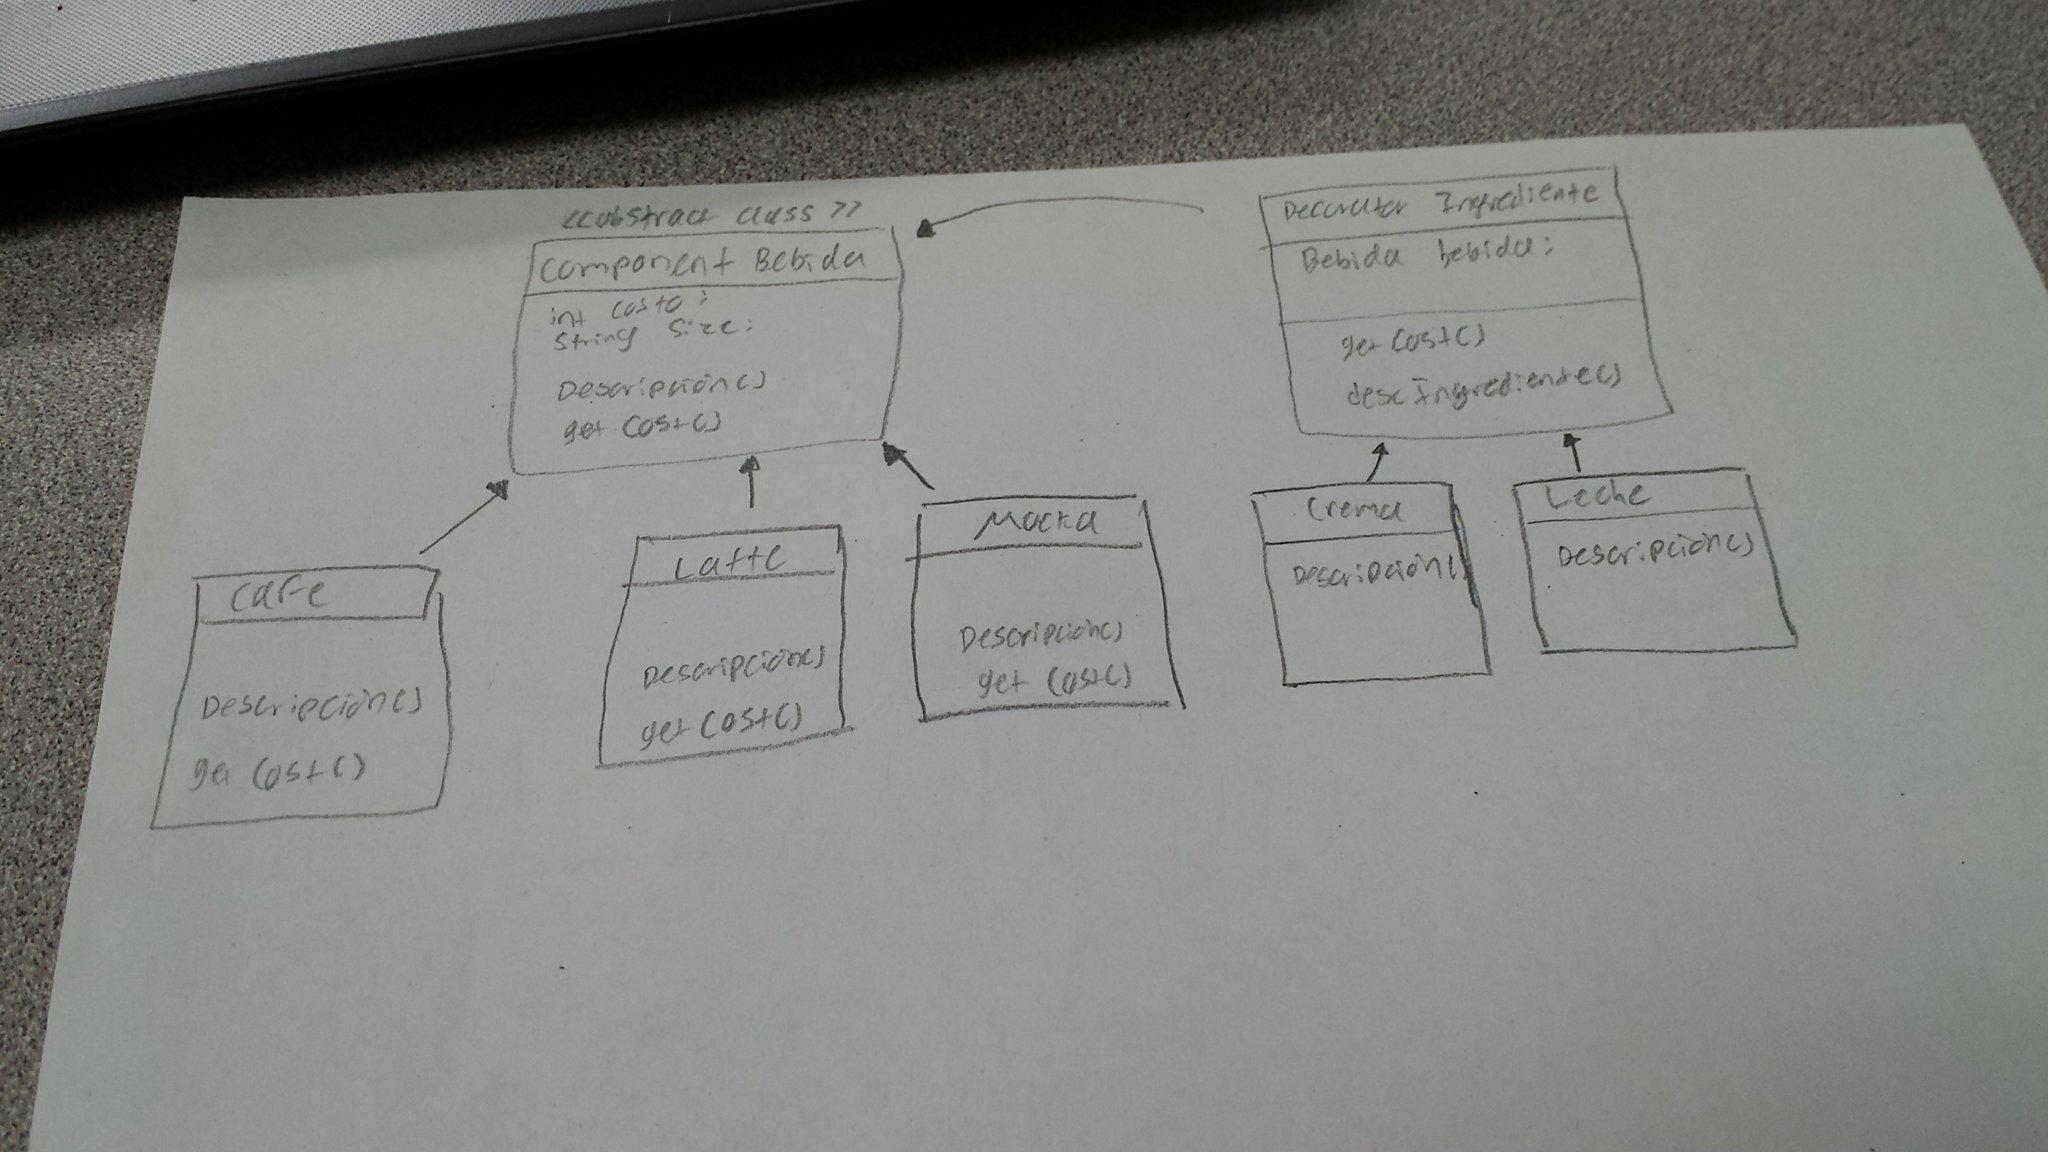 <<abstract class>>
Component Bebida
int costo;
String size;
Descripción()
get Cost()
Decorator Ingrediente
Bebida bebida;
get Cost()
desc Ingrediente()
Cafe
Descripción()
get Cost()
Latte
Descripción()
get Cost()
Mocka
Descripción()
get Cost()
Crema
Descripción()
Leche
Descripción()